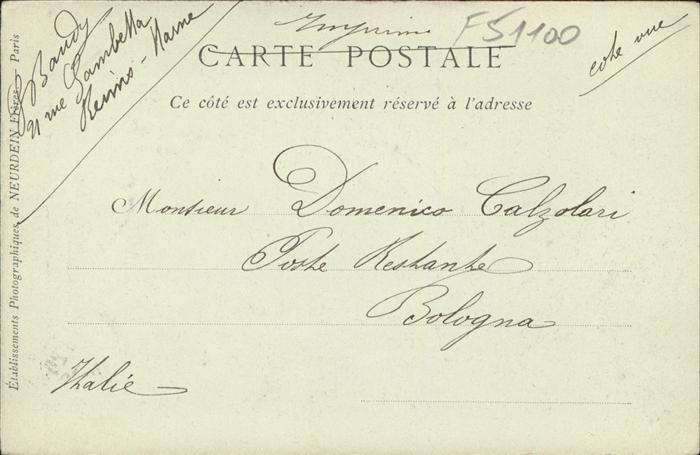 Baudy
21 rue Gambetta
Reims - Marne
Imprimé
FS1100
CARTE POSTALE
cote vue
Ce côté est exclusivement réservé à l'adresse
Monsieur Domenico Calzolari
Poste Restante
Bologna
Italie
Établissements Photographiques de NEURDEIN Frères - Paris